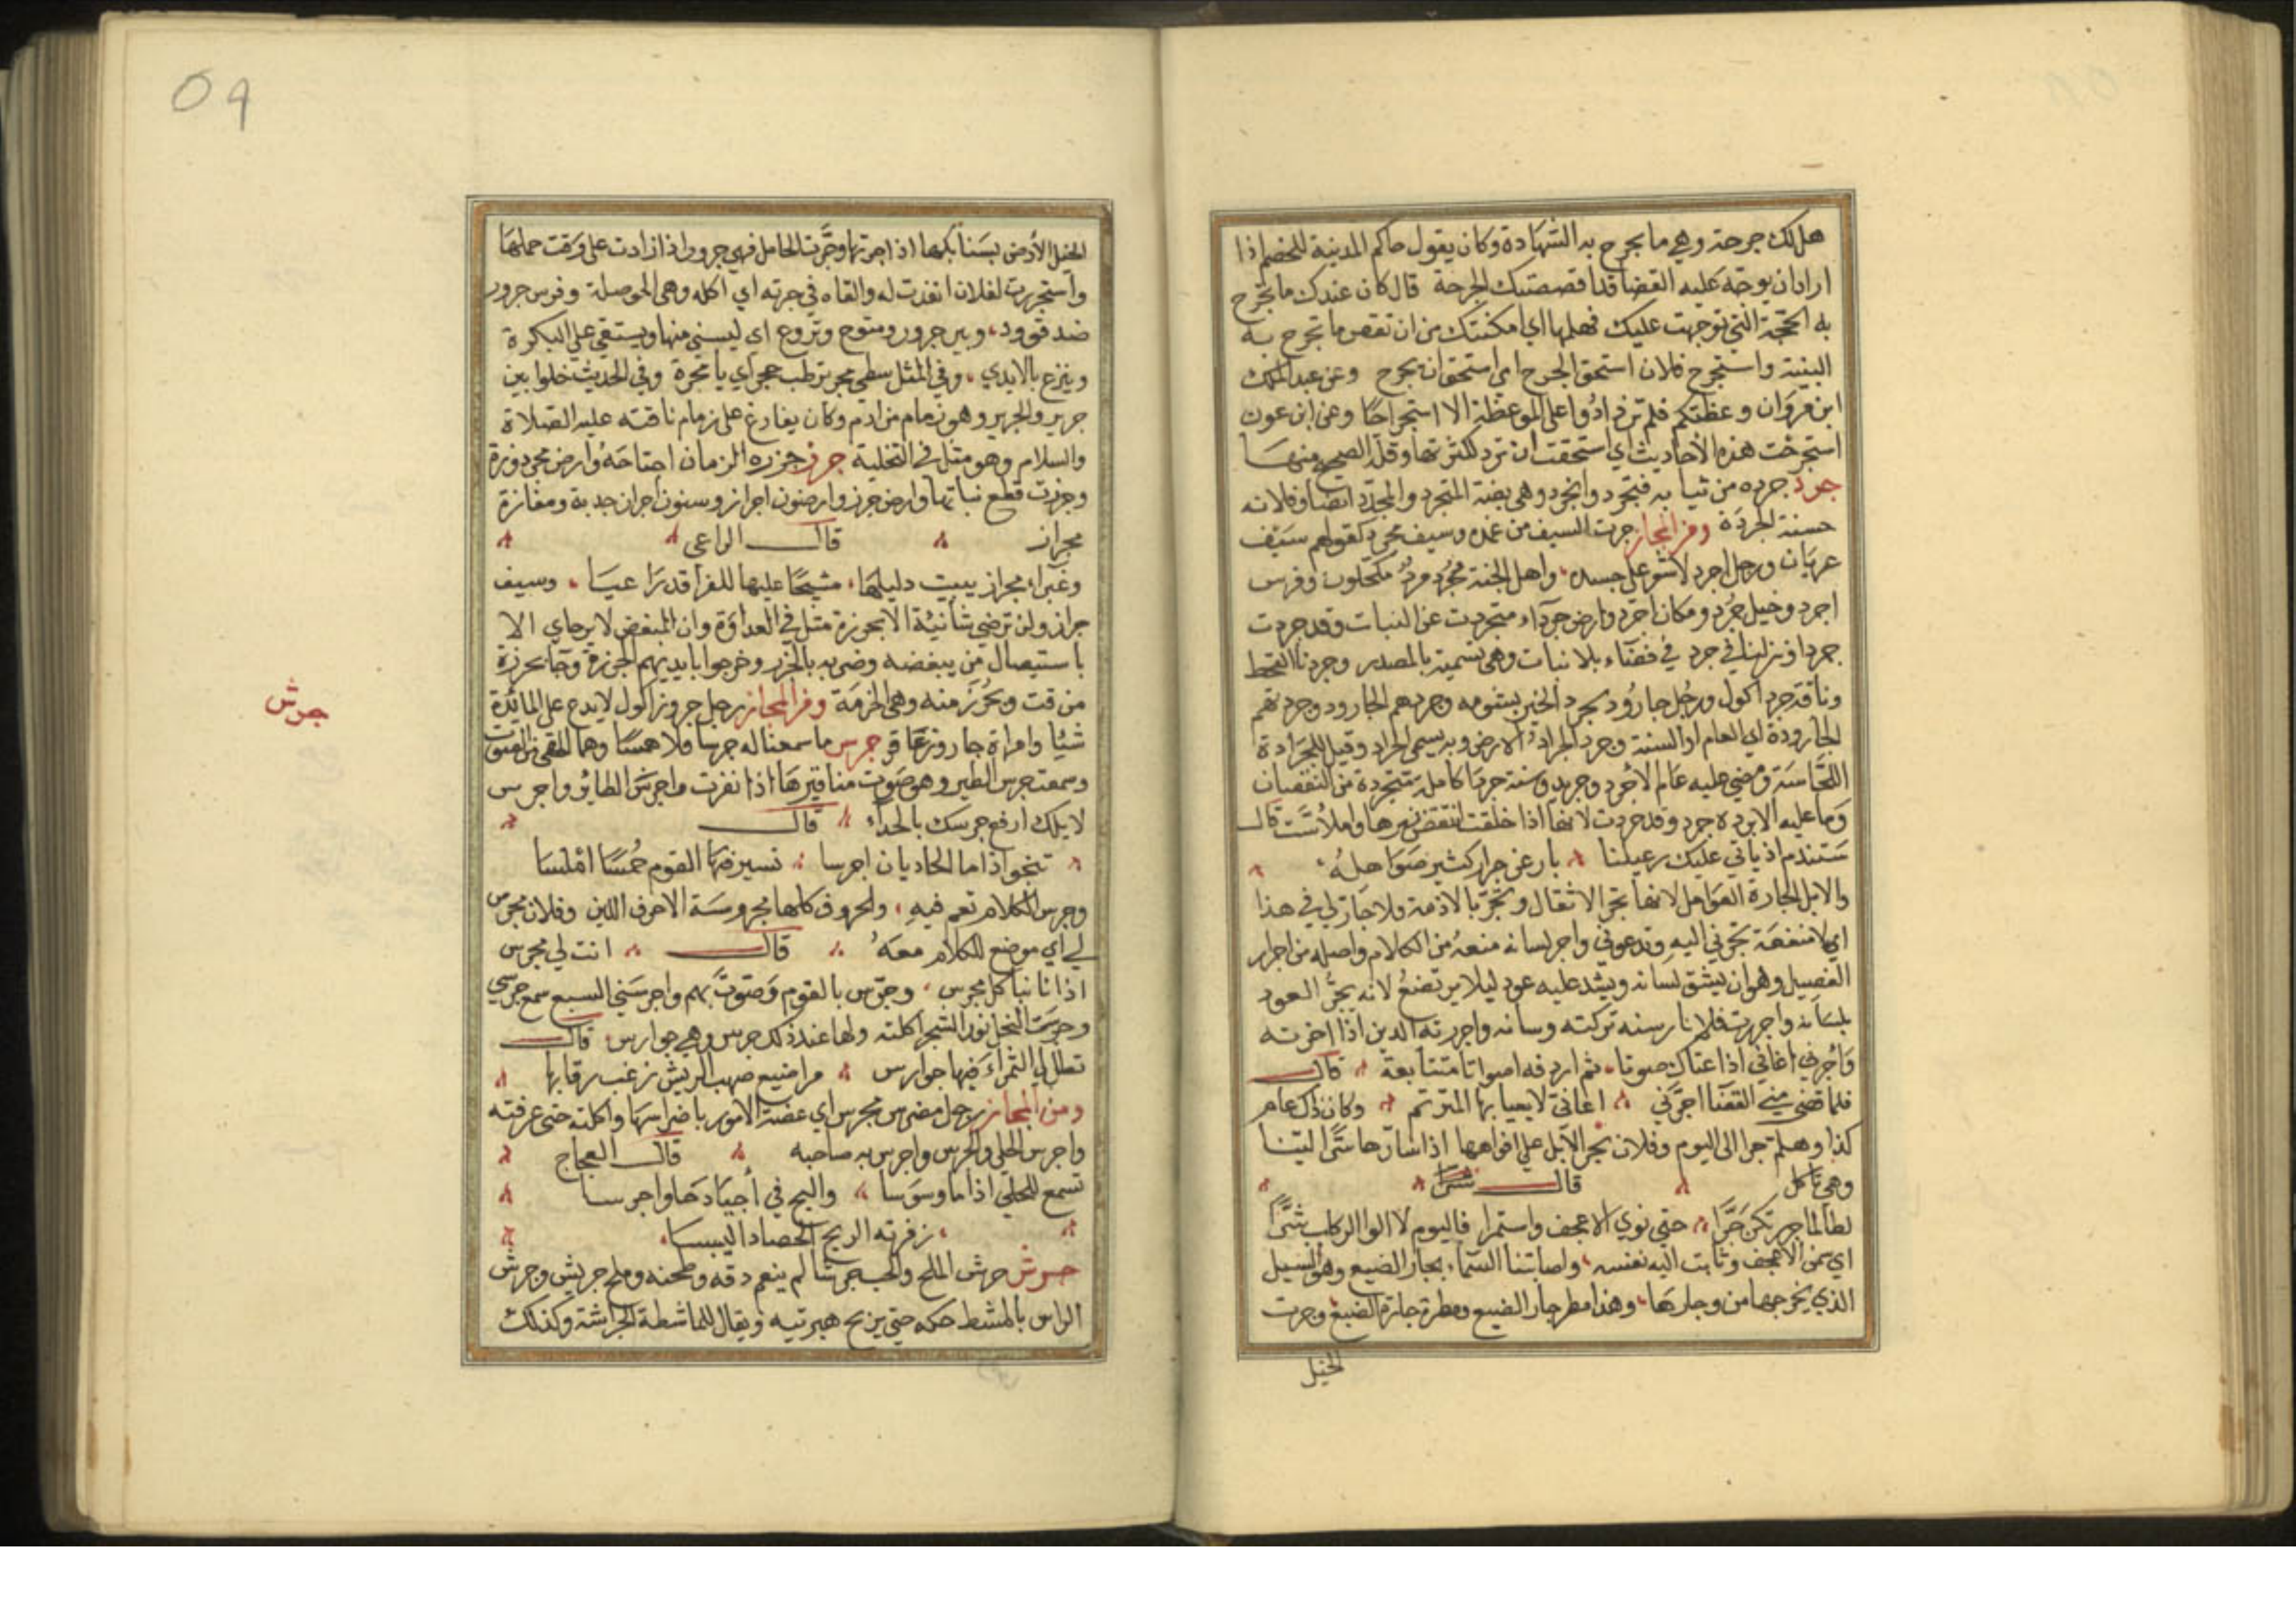 هل لك جرحة وهي ما يجرح به الشهادة وكان يقول حاكم المدينة للخصم اذا
اراد ان يوجه عليه القضا قد اقصصتك الجرحة قال كان عندك ما تجرح
به الحجة التي توجهت عليك فهلمها اي امكنتك من ان تقص ما تجرح به
البينة واستجرح فلان استحق الجرح اي استحق ان يجرح وعن عبد الملك
ابن مروان وعظتكم فلم تزدادوا على الموعظة الا استجراحا وعن ابن عون
استجرحت هذه الاحاديث اي استحقت ان ترد لكثرتها وقلة الصحيح منها
جرد جرده من ثيابه فتجرد وانجرد وهي بضة المتجرد والمجرد ايضا وفلانه
حسنة الجردة ومن المجاز جردت السيف من غمده وسيف مجرد كقولهم سيف
عريان ورجل اجرد لا شعر على جسده واهل الجنة مجرد مرد مكحلون وفرس
اجرد وخيل جرد ومكان اجرد وارض جرداء متجردت عن النبات وقد جردت
جردا ونزلنا في جرد في فضاء بلا نبات وهي تسمية بالمصدر وجردنا القحط
وناقة جرد اكول ورجل جارود يجرد الخير بشومه وجردهم الجارود وجردتهم
الجارودة اي العام او السنة وجرد الجراد الارض وبه يسمى الجراد وقيل للجرادة
اللحاسة ومضى عليه عام الاجرد وجريد وسنة جردا كاملة متجردة من النقصان
وما عليه الا بردة جرد وقد جردت لانها اذا خلقت انتقض زئبرها واملاست قال
ستندم اذ ياتي عليك رعيلنا بارعن جرار كثير صواهله
والابل الجارة العوامل لانها تجر الاثقال وتجر بالازمة ولا جارة لي في هذا
اي لا منفعة تجرني اليه وتدعوني واجر لسانه منعه من الكلام واصله من اجرار
الفصيل وهو ان يشق لسانه ويشد عليه عود ليلا يرتضع لانه يجر العود
بلسانه واجررت فلانا رسنه تركته وسانه واجررته الدين اذا اخرته
واجرني اغاني اذا غناك صوتا ثم اردفه اصواتا متتابعة قال
فلما قضى مني القضا اجرني اغاني لا يعيا بها المترنم وكان ذلك عام
كذا وهلم جرا الى اليوم وفلان يجر الابل على افواهها اذا سارها سيرا لينا
وهي تاكل قال
لطالما جررتكن جرا حتى نوي الاعجف واستمرا فاليوم لا الوا الركاب شرا
اي سمن الاعجف وثابت اليه نفسه واصابتنا السماء بجار الضبع وهو السيل
الذي يخرجها من وجارها وهذا مطر جار الضبع ومطرة جارة الضبع وجرت
الخيل
٥٩
الخيل الارض بسنابكها اذا جرتها وجرت الحامل فهي جرور اذا زادت على وقت حملها
واستجررت لفلان انقدت له والقاه في جرته اي اكله وهي الموصلة وفرس جرور
ضد قوود وبير جرور ومتوح ونزوع اي ليسنى منها ويستقى على البكرة
وينزع بالايدي وفي المثل سطي مجر ترطب هجر اي يا مجرة وفي الحديث خلوا بين
جرير والجرير وهو زمام من ادم وكان ينازع على زمام ناقته عليه الصلاة
والسلام وهو مثل في التخلية جرز جرزه الزمان اجتاحه وارض مجروزة
وجرزت قطع نباتها وارض جرز وارضون اجراز وسنون اجراز جدبة ومفازة
مجراز قال الراعي
وغبراء مجراز يبيت دليلها مشيحا عليها للفراقد راعيا وسيف
جراز ولن ترضى شانئة الا بجرزة مثل في العداوة وان المبغض لا يرضاى الا
باستيصال من يبغضه وضربه بالجرز وخرجوا بايديهم الجرزة وجا بجرزة
من قت وبجرز منه وهي الحزمة ومن المجاز رجل جروز اكول لا يدع على المائدة
شيا وامراة جاروز جرس ما سمعنا له جرسا ولا همسا وهما الخفي من الصوت
وسمعت جرس الطير وهو صوت مناقيرها اذا نقرت واجرس الطائر واجرس
لابلك ارفع جرسك بالحداء قال
تنجوا اذا ما الحاديان اجرسا تسير فيها القوم خمسا املسا
وجرس الكلام تغم فيه والحروف كلها مجروسة الا حرف اللين وفلان مجرس
لي اي موضع للكلام معه قال انت لي مجرس
اذا ما نبا كل مجرس وجرس بالقوم وصوت بهم واجرسني السبع سمع جرسي
وجرست النحل نور الشجر اكلته ولها عند ذلك جرس وهي جوارس قال
تظل على الثمراء منها جوارس مراضيع صهب الريش زغب رقابها
ومن المجاز رجل مضرس مجرس اي عضته الامور باضراسها واكلته حتى عرفته
واجرس الحلي والجرس واجرس به صاحبه قال العجاج
تسمع للحلي اذا ما وسوسا والتج في اجيادها واجرسا
زفزفة الريح الحصاد اليبسا
جرش جرش الملح والحب جرشا لم ينعم دقه وطحنه وملح جريش وجرش
الراس بالمشط حكه حتى يزيح هبريته ويقال للماشطة الجراشة وكذلك
جرش